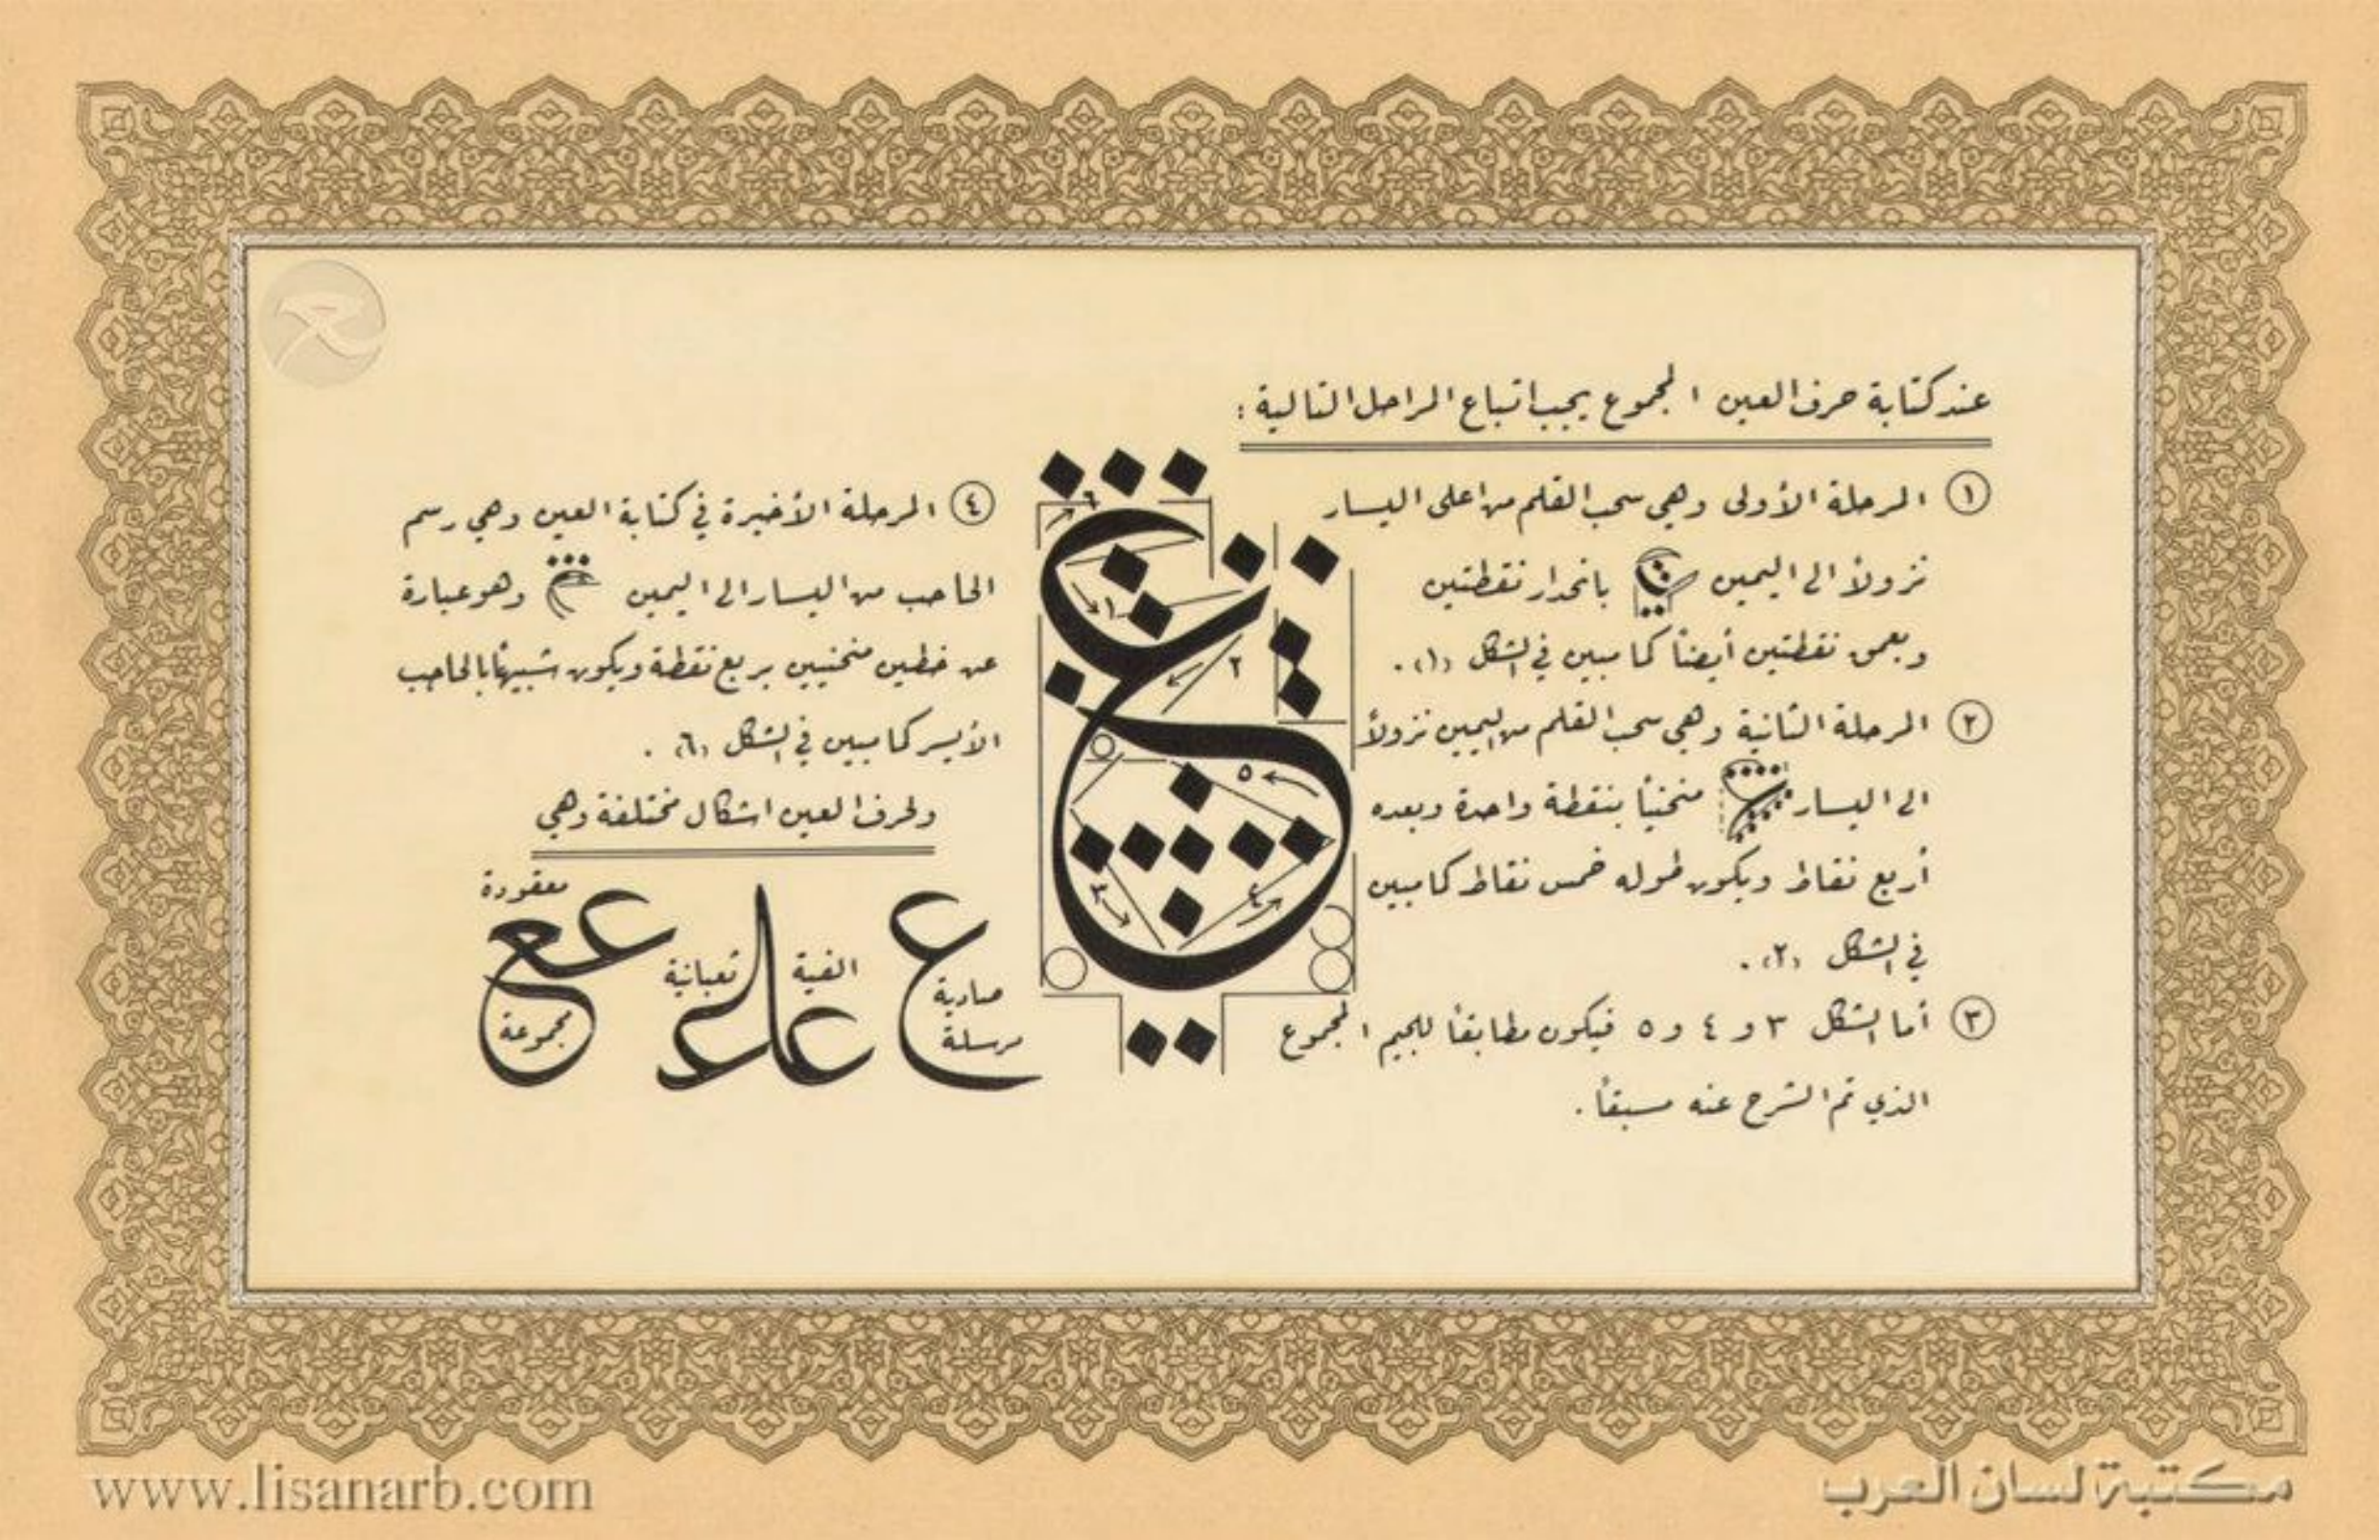 عند كتابة حرف العين المجموع يجب اتباع المراحل التالية :
١ المرحلة الأولى وهي سحب القلم من اعلى اليسار
نزولاً الى اليمين بانحدار نقطتين
وبعمق نقطتين أيضاً كما مبين في الشكل (١) .
٢ المرحلة الثانية وهي سحب القلم من اليمين نزولاً
الى اليسار منحنياً بنقطة واحدة وبعده
أربع نقاط ويكون طوله خمس نقاط كما مبين
في الشكل (٢) .
٣ أما الشكل ٣ و ٤ و ٥ فيكون مطابقاً للجيم المجموع
الذي تم الشرح عنه مسبقاً .
٦
١
٢
٥
٣
٤
٤ المرحلة الأخيرة في كتابة العين وهي رسم
الحاجب من اليسار الى اليمين وهو عبارة
عن خطين منحنيين بربع نقطة ويكون شبيهاً بالحاجب
الأيسر كما مبين في الشكل (٦) .
ولحرف العين اشكال مختلفة وهي
صادية
مرسلة
الفية
ثعبانية
معقودة
مجموعة
www.lisanarb.com
مكتبة لسان العرب